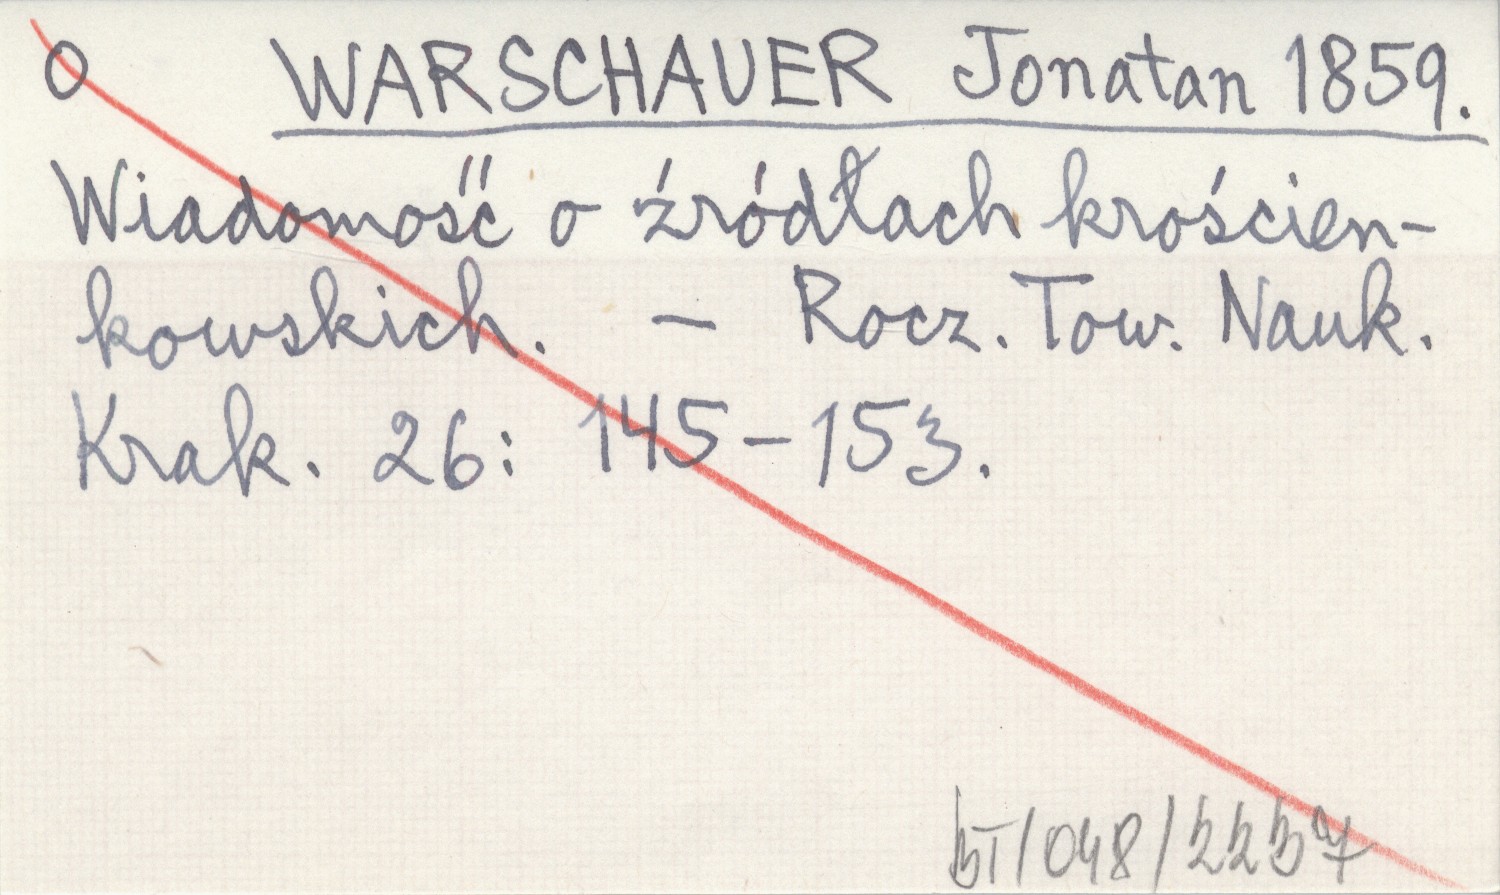 O WARSCHAUER Jonatan 1859.
Wiadomość o źródłach krościen-
kowskich. – Rocz. Tow. Nauk.
Krak. 26: 145–153.